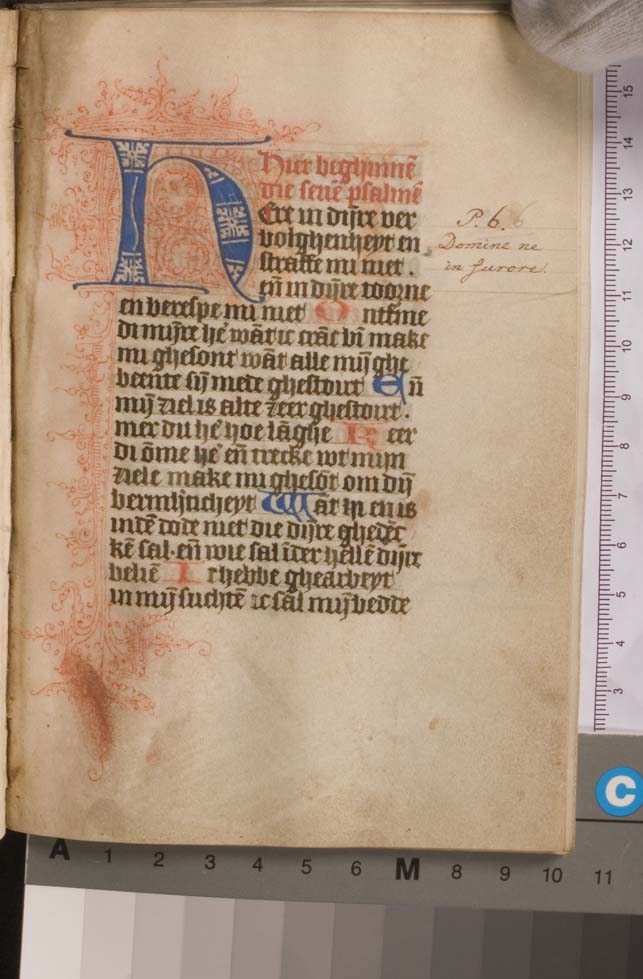 Hier beghinnē
die seuē psalmē
HEre in dijre ver
bolghenheyt en
straffe mi niet .
eñ in dijre toorne
en berespe mi niet Ontfme
di mijre hē wāt ic crāc bī make
mi ghesont wāt alle mij ghe
beente sij mede ghestoirt Eñ
mij ziel is alte zeer ghestoirt .
mer du hē hoe lāghe Keer
di ōme hē eñ trecke wt mijn
ziele make mi ghesōt om dij
bermh̄ticheyt Wāt hi en is
indē dode niet die dijre ghedēc
kē sal · eñ wie sal īder hellē dijre
beliē Ic hebbe ghearbeyt
in mij suchtē ic sal mij bedde
P. 6.
Domine ne
in furore.
15
14
13
12
11
10
9
8
7
6
5
4
3
C
A 1 2 3 4 5 6 M 8 9 10 11